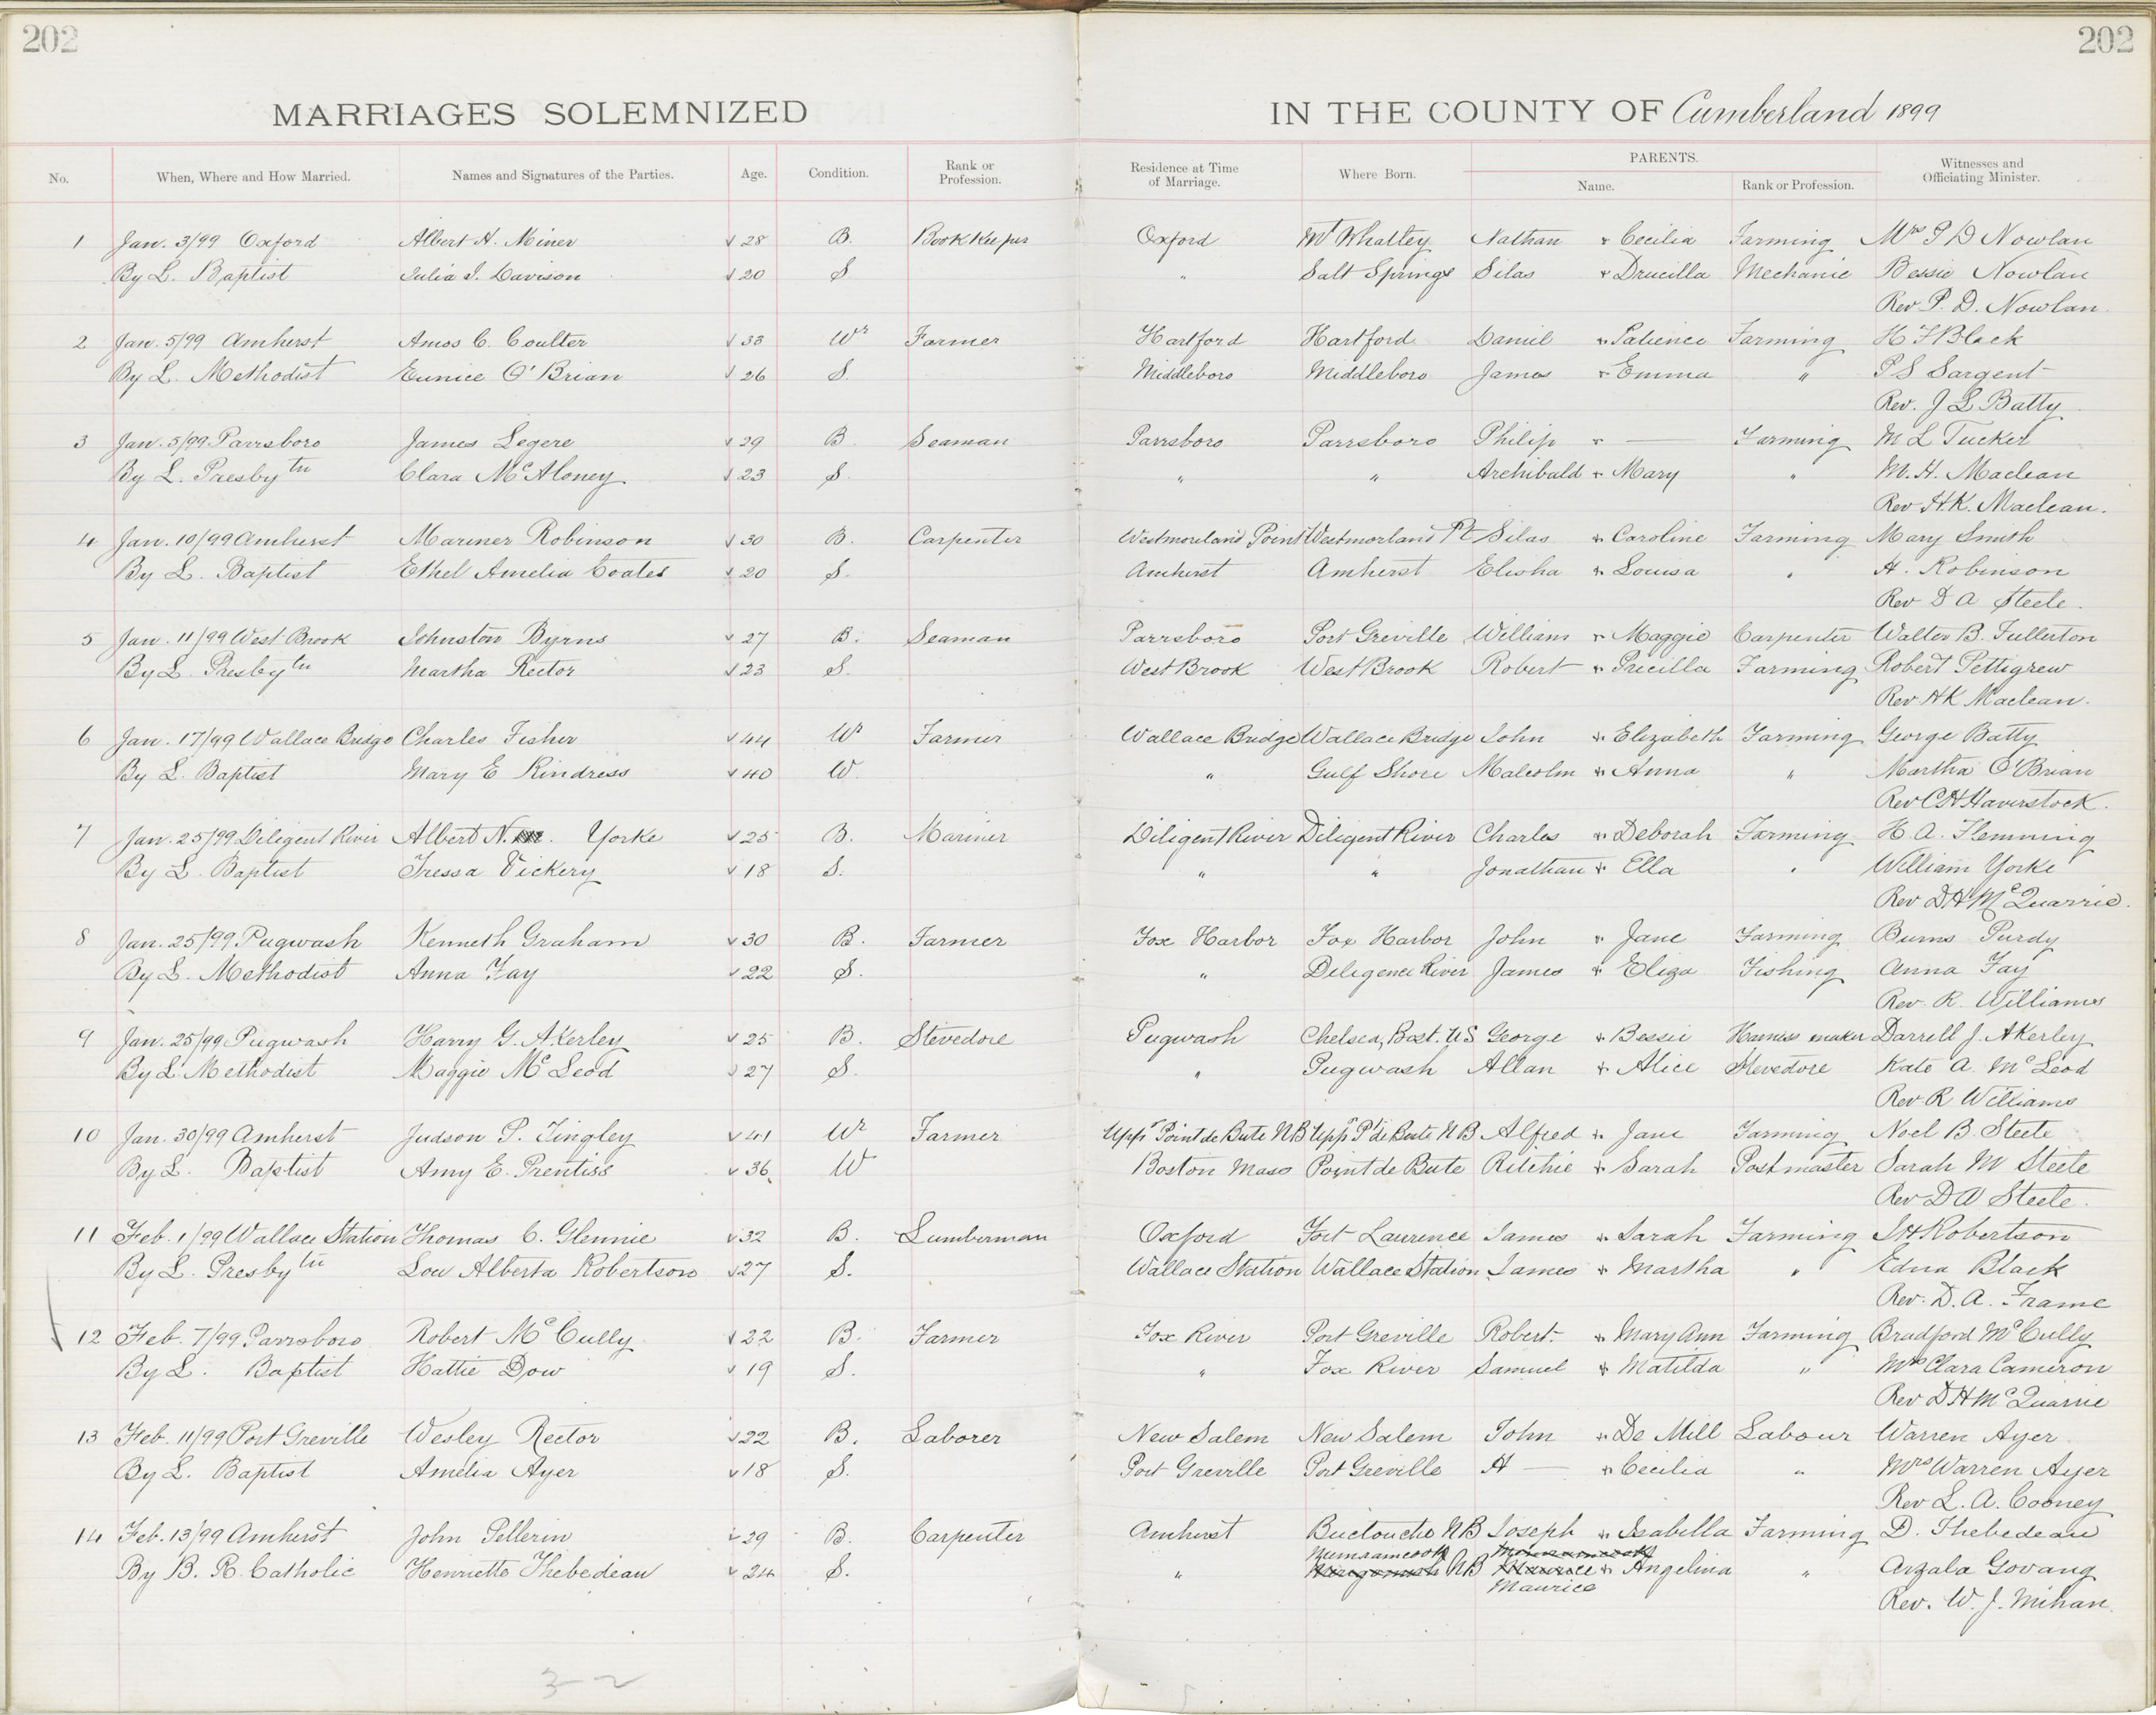 202 202
MARRIAGES SOLEMNIZED IN THE COUNTY OF Cumberland 1899
No. When, Where and How Married. Names and Signatures of the Parties. Age. Condition. Rank or Profession. Residence at Time of Marriage. Where Born. PARENTS. Name. Rank or Profession. Witnesses and Officiating Minister.
1 Jan. 3/99 Oxford Albert A. Miner √ 28 B. Book Keeper Oxford Mt Whatley Nathan + Cecilia Farming Mrs P D Nowlan
By L. Baptist Julia I. Davison √ 20 S " Salt Springs Silas + Drucilla Mechanic Bessie Nowlan
Rev P. D. Nowlan.
2 Jan. 5/99 Amherst Amos C. Coulter √ 33 Wr Farmer Hartford Hartford Daniel + Patience Farming H F Black
By L. Methodist Eunice O'Brian √ 26 S. Middleboro Middleboro James + Emma " P S Sargent
Rev. J L Batty
3 Jan. 5/99 Parrsboro James Legere √ 29 B. Seaman Parrsboro Parrsboro Philip + — Farming M L Tucker
By L. Presbytn Clara McAloney √ 23 S. " " Archibald + Mary " M. H. Maclean
Rev H.K. Maclean.
4 Jan. 10/99 Amherst Mariner Robinson √ 30 B. Carpenter Westmoreland Point Westmorland Pt Silas + Caroline Farming Mary Smith
By L. Baptist Ethel Amelia Coates √ 20 S. Amherst Amherst Elisha + Louisa " H. Robinson
Rev D A Steele.
5 Jan. 11/99 West Brook Johnston Byrns √ 27 B. Seaman Parrsboro Port Greville William + Maggie Carpenter Walter B. Fullerton
By L. Presbytn Martha Rector √ 23 S. West Brook West Brook Robert + Precilla Farming Robert Pettigrew
Rev HK Maclean.
6 Jan. 17/99 Wallace Bridge Charles Fisher √ 44 Wr Farmer Wallace Bridge Wallace Bridge John + Elizabeth Farming George Batty
By L. Baptist Mary E Kindress √ 40 W. " Gulf Shore Malcolm + Anna " Martha O'Brian
Rev C H Haverstock.
7 Jan. 25/99 Diligent River Albert N. Yorke √ 25 B. Mariner Diligent River Diligent River Charles + Deborah Farming H. A. Flemming
By L. Baptist Tressa Vickery √ 18 S. " " Jonathan + Ella " William Yorke
Rev D H McQuarrie.
8 Jan. 25/99 Pugwash Kenneth Graham √ 30 B. Farmer Fox Harbor Fox Harbor John + Jane Farming Burns Purdy
By L. Methodist Anna Fay √ 22 S. " Diligence River James + Eliza Fishing Anna Fay
Rev. R. Williams
9 Jan. 25/99 Pugwash Harry G. Akerley √ 25 B. Stevedore Pugwash Chelsea, Bost. US George + Bessie Harness maker Darrell J. Akerley
By L. Methodist Maggie McLeod √ 27 S. " Pugwash Allan + Alice Stevedore Kate A. McLeod
Rev. R Williams
10 Jan. 30/99 Amherst Judson P. Tingley √ 41 Wr Farmer Uppr Point de Bute NB Uppr Pt de Bute N B Alfred + Jane Farming Noel B. Steele
By L. Baptist Amy E. Prentiss √ 36 W Boston Mass Point de Bute Ritchie + Sarah Postmaster Sarah M Steele
Rev D A Steele.
11 Feb. 1/99 Wallace Station Thomas C. Glennie √ 32 B. Lumberman Oxford Fort Laurence James + Sarah Farming J H Robertson
By L. Presbytn Lou Alberta Robertson √ 27 S. Wallace Station Wallace Station James + Martha " Edna Black
Rev. D. A. Frame
12 Feb. 7/99 Parrsboro Robert McCully √ 22 B. Farmer Fox River Port Greville Robert + Mary Ann Farming Bradford McCully
By L. Baptist Hattie Dow √ 19 S. " Fox River Samuel + Matilda " Mrs Clara Cameron
Rev D H McQuarrie
13 Feb. 11/99 Port Greville Wesley Rector √ 22 B. Laborer New Salem New Salem John + De Mill Labour Warren Ayer
By L. Baptist Amelia Ayer √ 18 S. Port Greville Port Greville H — + Cecilia " Mrs Warren Ayer
Rev L. A. Cooney
14 Feb. 13/99 Amherst John Pellerin √ 29 B. Carpenter Amherst Buctouche NB Joseph + Isabella Farming D. Thebedeau
Memramcook
By B. R. Catholic Henriette Thebedeau √ 24 S. " NB Maurice + Angelina " Arzala Govang
Maurice
Rev. W. J. Mihan.
3-2